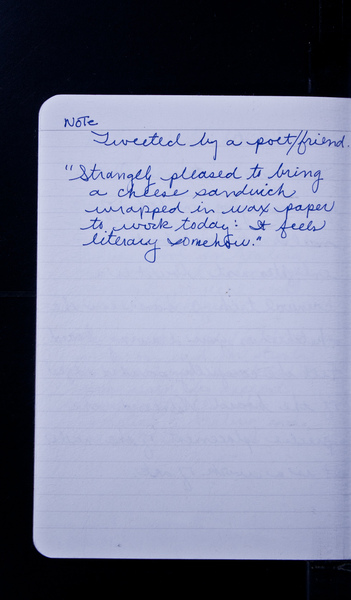 NOTE
Tweeted by a poet/friend.
"Strangely pleased to bring
a cheese sandwich
wrapped in wax paper
to work today: It feels
literary somehow."